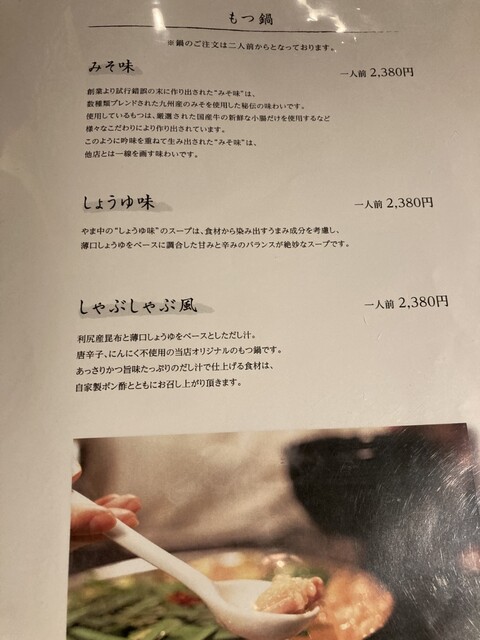 もつ鍋
※鍋のご注文は二人前からとなっております。
みそ味 一人前 2,380円
創業より試行錯誤の末に作り出された“みそ味”は、
数種類ブレンドされた九州産のみそを使用した秘伝の味わいです。
使用しているもつは、厳選された国産牛の新鮮な小腸だけを使用するなど
様々なこだわりにより作り出されています。
このように吟味を重ねて生み出された“みそ味”は、
他店とは一線を画す味わいです。
しょうゆ味 一人前 2,380円
やま中の“しょうゆ味”のスープは、食材から染み出すうまみ成分を考慮し、
薄口しょうゆをベースに調合した甘みと辛みのバランスが絶妙なスープです。
しゃぶしゃぶ風 一人前 2,380円
利尻産昆布と薄口しょうゆをベースとしただし汁。
唐辛子、にんにく不使用の当店オリジナルのもつ鍋です。
あっさりかつ旨味たっぷりのだし汁で仕上げる食材は、
自家製ポン酢とともにお召し上がり頂きます。